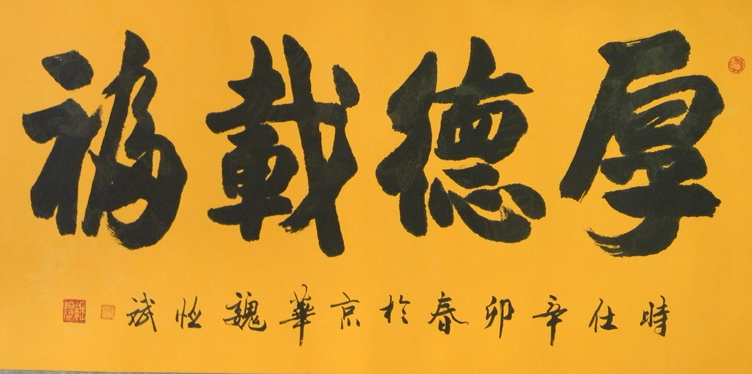 厚德載福
時在辛卯春於京華魏恒斌